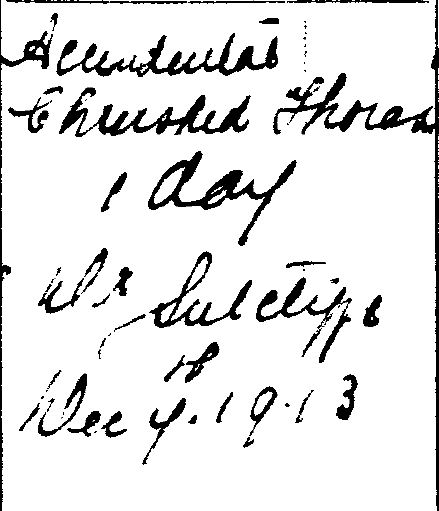 Accidental
Chrushed Thorax
1 day
Dr Sutcliffe
Dec 4. 1913